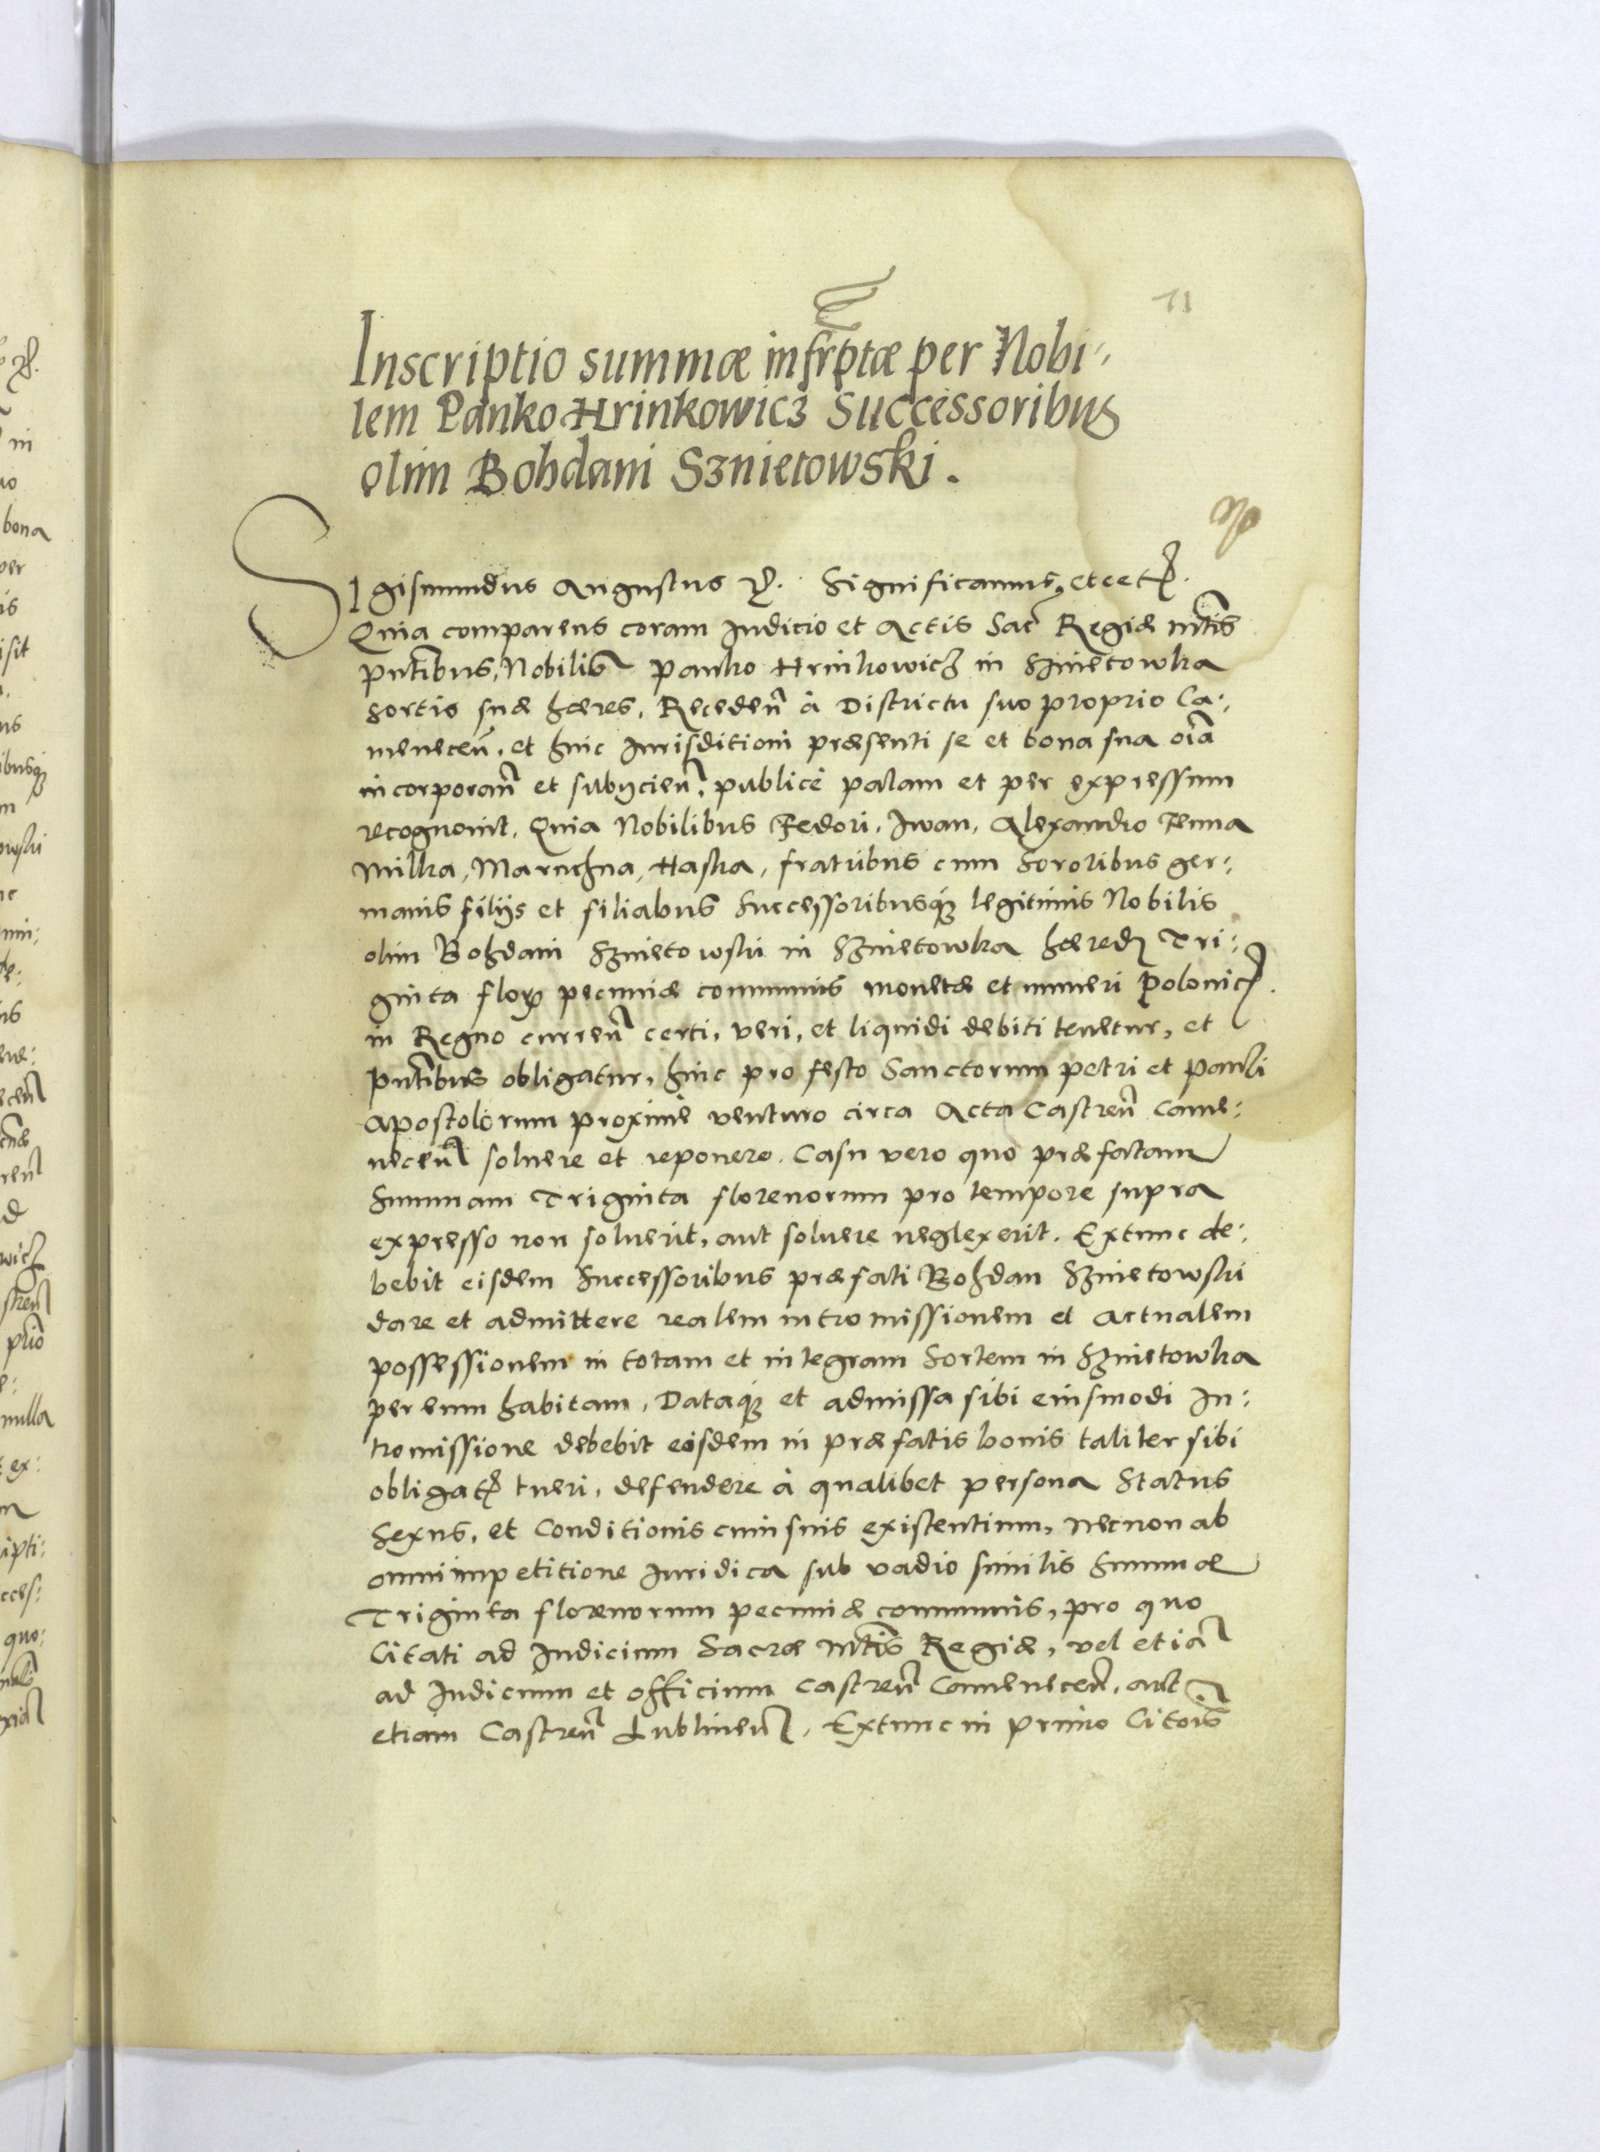 11
Inscriptio summæ infrptæ per Nobi-
lem Panko Hrinkowicz Successoribus
olim Bohdani Sznietowski.
Sigismundus Augustus &. Significamus, etcet.
Quia comparens coram Iudicio et Actis Sac Regiæ mtis
pntibus, Nobilis Panko Hrinkowicz in Sznietowka
sortis suæ hæres, Receden à Districtu suo proprio Ca:
menecen, et huic Iurisditioni præsenti se et bona sua oia
incorporan et subÿcien, publicè palam et per expressum
recognovit, Quia Nobilibus Fedori, Iwan, Alexandro Fenna
Milka, Maruchna, Haska, fratribus cum Sororibus ger:
manis filÿs et filiabus Successoribusq legitimis Nobilis
olim Bohdani Sznietowski in Sznietowka hæred Tri:
ginta flor pecuniæ communis monetæ et numeri Polonic.
in Regno curren certi, veri, et liquidi debiti tenetur, et
pntibus obligatur, hinc pro festo Sanctorum Petri et Pauli
Apostolorum proximè venturo circa Acta Castren Came:
necen soluere et reponere. Casu vero quo præfatam
Summam Triginta florenorum pro tempore supra
expresso non soluerit, aut soluere neglexerit. Extunc de:
bebit eisdem Successoribus præfati Bohdan Sznietowski
dare et admittere realem intromissionem et actualem
possessionem in totam et integram Sortem in Sznietowka
per eum habitam, Dataq et admissa sibi eiusmodi In:
tromissione debebit eosdem in præfatis bonis taliter sibi
obligat tueri, defendere à qualibet persona Status
Sexus, et Conditionis cuiusuis existentium, necnon ab
omni impetitione Iuridica sub vadio similis Summæ
Triginta florenorum pecuniæ communis, pro quo
Citati ad Iudicium Sacræ mtis Regiæ, vel etia
ad Iudicium et officium Castren Camenecen, aut
etiam Castren Lublinen. Extunc in primo Citois